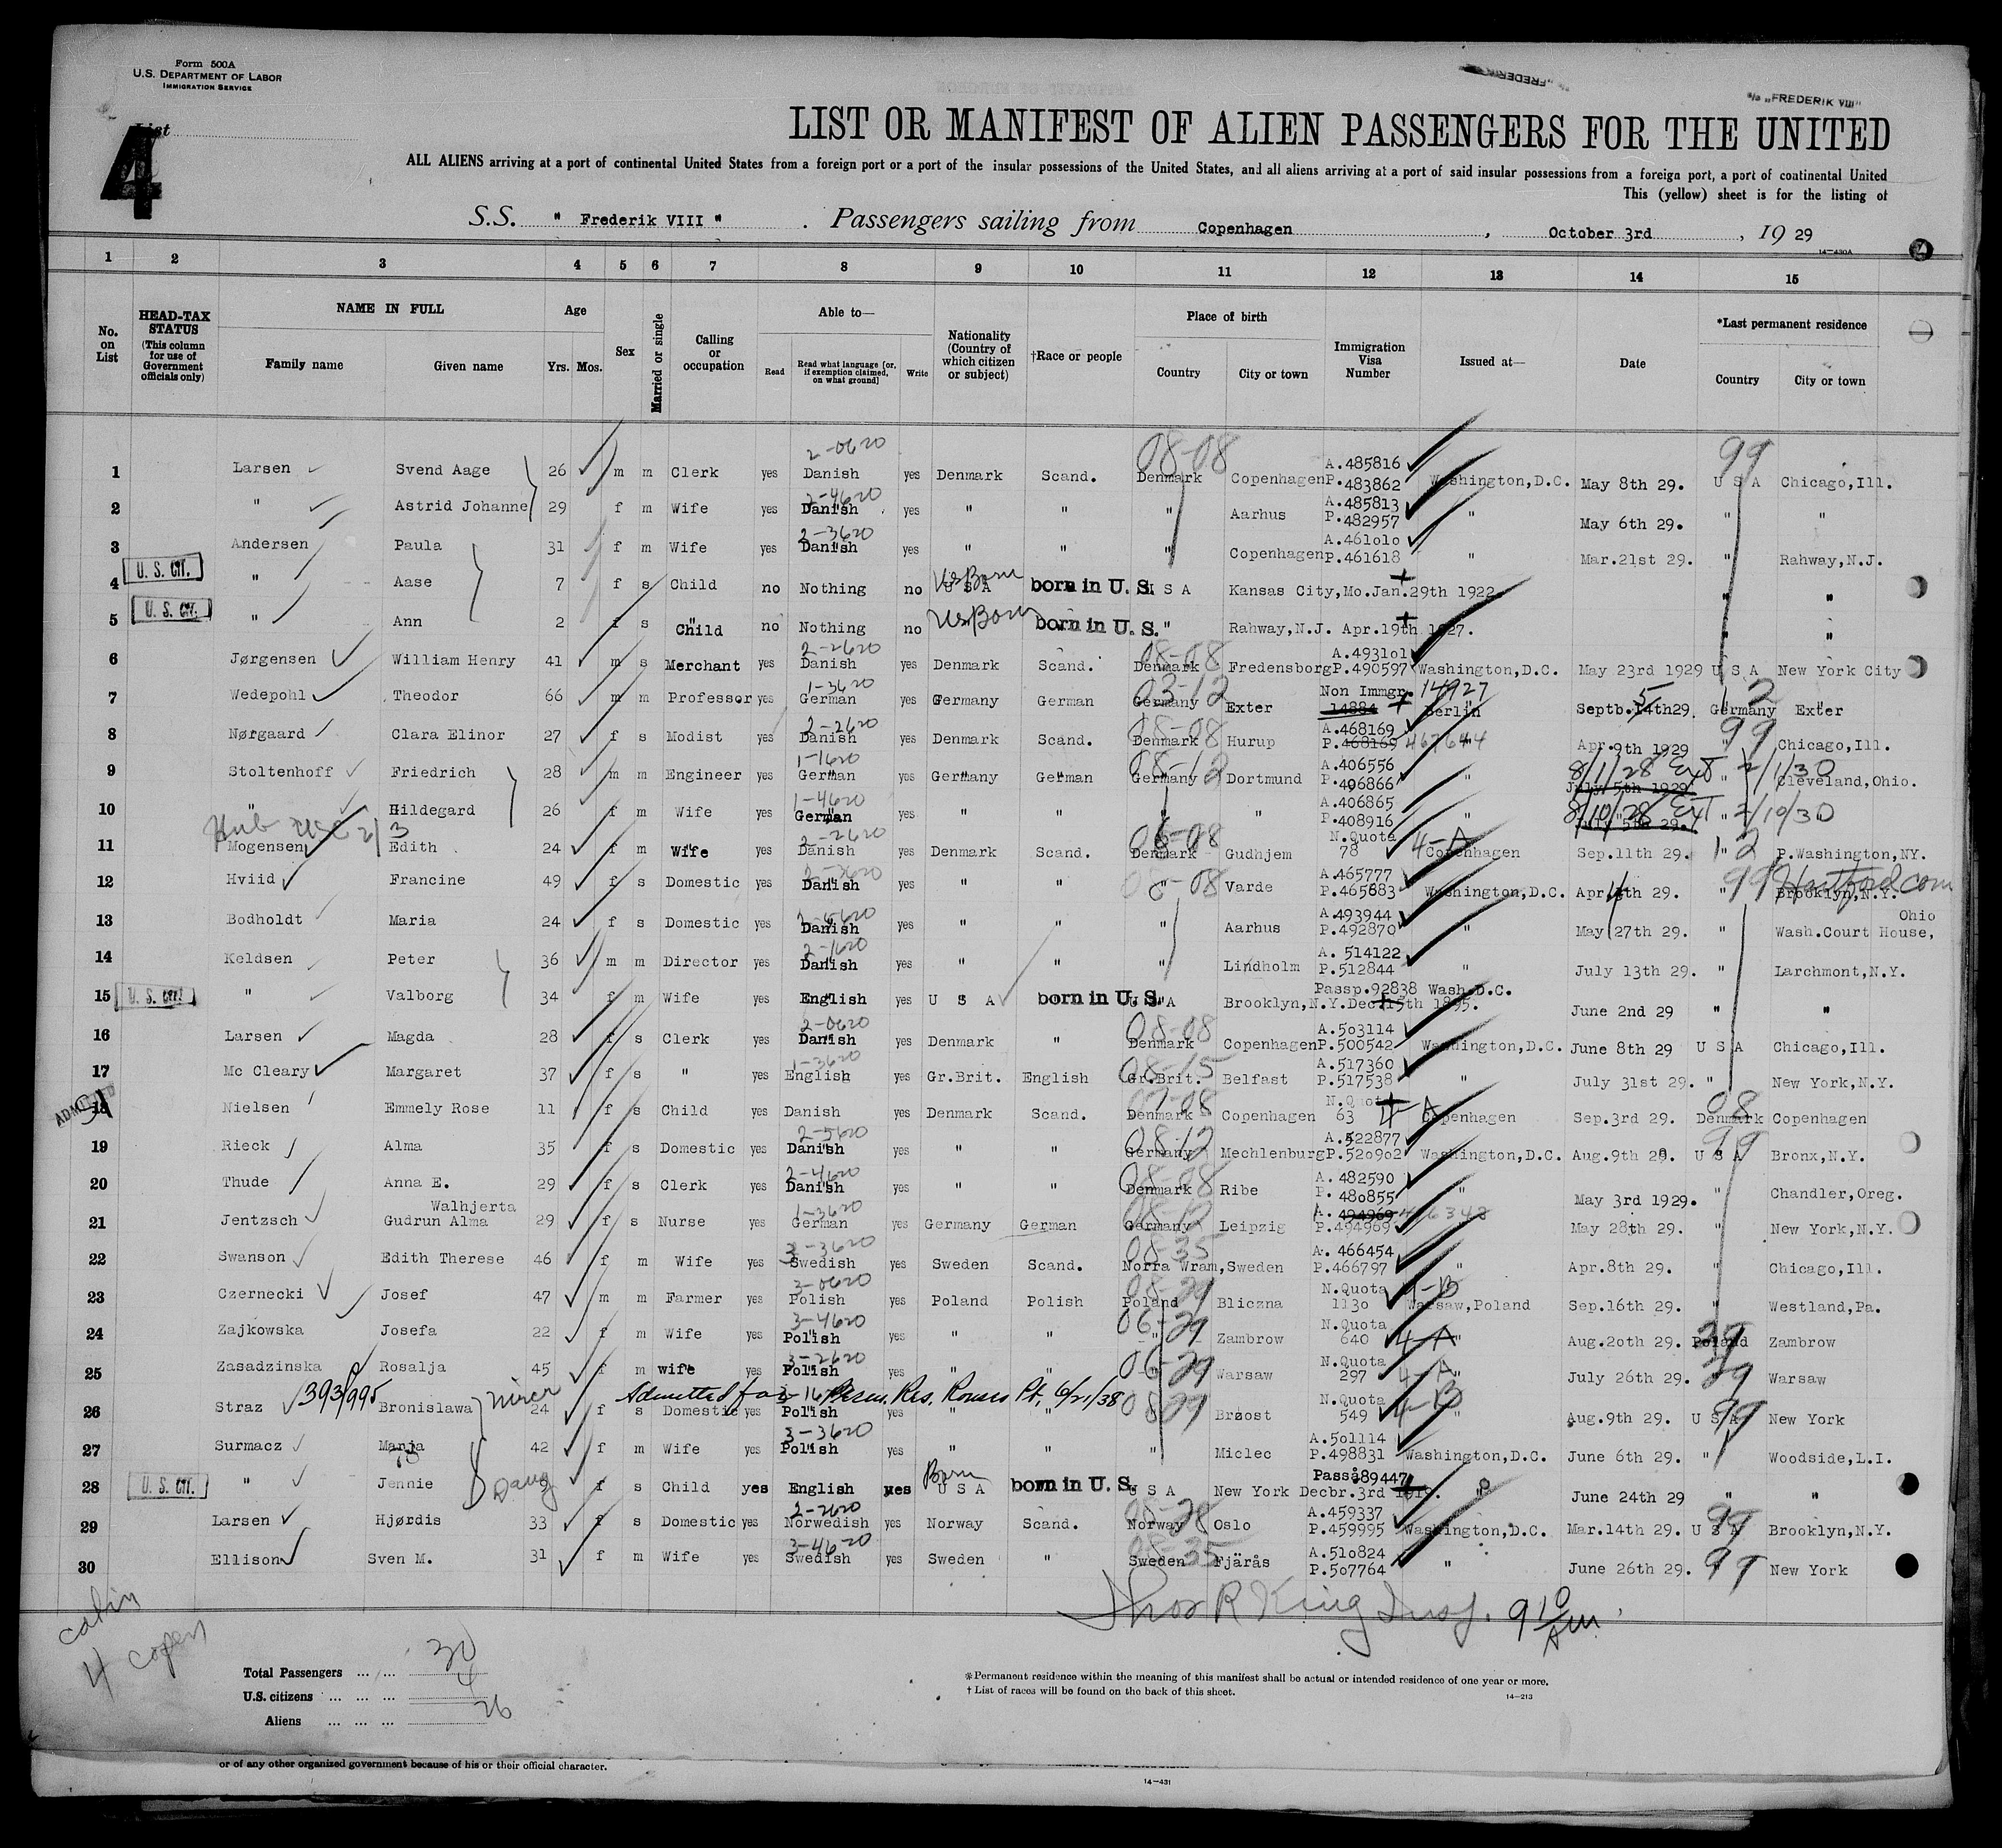 Form 500A
U.S. DEPARTMENT OF LABOR
IMMIGRATION SERVICE
"FREDERIK
S/S „FREDERIK VIII"
List
4
LIST OR MANIFEST OF ALIEN PASSENGERS FOR THE UNITED
ALL ALIENS arriving at a port of continental United States from a foreign port or a port of the insular possessions of the United States, and all aliens arriving at a port of said insular possessions from a foreign port, a port of continental United
This (yellow) sheet is for the listing of
S.S. " Frederik VIII " . Passengers sailing from Copenhagen , October 3rd , 19 29
14—430A
1 2 3 4 5 6 7 8 9 10 11 12 13 14 15
No. on List
HEAD-TAX STATUS (This column for use of Government officials only)
NAME IN FULL
Family name Given name
Age
Yrs. Mos.
Sex
Married or single
Calling or occupation
Able to—
Read Read what language [or, if exemption claimed, on what ground] Write
Nationality (Country of which citizen or subject)
†Race or people
Place of birth
Country City or town
Immigration Visa Number
Issued at—
Date
*Last permanent residence
Country City or town
2-0620 08-08 99
1 Larsen Svend Aage 26 m m Clerk yes Danish yes Denmark Scand. Denmark Copenhagen A.485816 P.483862 Washington,D.C. May 8th 29. U S A Chicago,Ill.
2-4620
2 " Astrid Johanne 29 f m Wife yes Danish yes " " " Aarhus A.485813 P.482957 " May 6th 29. " "
2-3620
3 Andersen Paula 31 f m Wife yes Danish yes " " " Copenhagen A.461010 P.461618 " Mar.21st 29. " Rahway,N.J.
U. S. CIT.
4 " Aase 7 f s Child no Nothing no U S A US Born born in U. S. U S A Kansas City,Mo.Jan.29th 1922 " "
U. S. CIT.
5 " Ann 2 f s Child no Nothing no US Born born in U. S. " Rahway,N.J. Apr.19th 1927. " "
2-2620 08-08
6 Jørgensen William Henry 41 m s Merchant yes Danish yes Denmark Scand. Denmark Fredensborg A.493101 P.490597 Washington,D.C. May 23rd 1929 U S A New York City
1-3620 03-12 12
7 Wedepohl Theodor 66 m m Professor yes German yes Germany German Germany Exter Non Immgr. 14884 14927 Berlin Septb.14th29. 5 Germany Exter
2-2620 08-08 99
8 Nørgaard Clara Elinor 27 f s Modist yes Danish yes Denmark Scand. Denmark Hurup A.468169 P.468169 467644 " Apr.9th 1929 " Chicago,Ill.
1-1620 08-12
9 Stoltenhoff Friedrich 28 m m Engineer yes German yes Germany German Germany Dortmund A.406556 P.406866 " July 5th 1929 8/1/28 Ext 2/1/30 " Cleveland,Ohio.
1-4620
10 " Hildegard 26 f m Wife yes German yes " " " " A.406865 P.408916 " July 5th 29. 8/10/28 Ext 2/10/30 "
2-2620 06-08 12
11 Mogensen Edith 24 f m Wife yes Danish yes Denmark Scand. Denmark Gudhjem N.Quota 78 4-A Copenhagen Sep.11th 29. " P.Washington,NY.
2-3620 08-08 99
12 Hviid Francine 49 f s Domestic yes Danish yes " " " Varde A.465777 P.465683 Washington,D.C. Apr 4th 29. " Brooklyn,N.Y. Hartford Conn
13 Bodholdt Maria 24 f s Domestic yes Danish yes " " " Aarhus A.493944 P.492870 " May 27th 29. " Wash.Court House, Ohio
2-1620
14 Keldsen Peter 36 m m Director yes Danish yes " " " Lindholm A. 514122 P.512844 " July 13th 29. " Larchmont,N.Y.
U. S. CIT.
15 " Valborg 34 f m Wife yes English yes U S A born in U. S. U S A Brooklyn,N.Y.Dec.15th 1895. Passp.92838 Wash.D.C. June 2nd 29 " "
2-0620 08-08
16 Larsen Magda 28 f s Clerk yes Danish yes Denmark " Denmark Copenhagen A.503114 P.500542 Washington,D.C. June 8th 29 U S A Chicago,Ill.
1-3620 08-15
17 Mc Cleary Margaret 37 f s " yes English yes Gr.Brit. English Gr.Brit. Belfast A.517360 P.517538 " July 31st 29. " New York,N.Y.
ADMITTED 07-08 08
18 Nielsen Emmely Rose 11 f s Child yes Danish yes Denmark Scand. Denmark Copenhagen N.Quota 63 4-A Copenhagen Sep.3rd 29. Denmark Copenhagen
2-5620 08-12 99
19 Rieck Alma 35 f s Domestic yes Danish yes " " Germany Mechlenburg A.522877 P.520902 Washington,D.C. Aug.9th 29. U S A Bronx,N.Y.
2-4620 08-08
20 Thude Anna E. 29 f s Clerk yes Danish yes " " Denmark Ribe A. 482590 P. 480855 " May 3rd 1929. " Chandler,Oreg.
1-3620 08-12
21 Jentzsch Walhjerta Gudrun Alma 29 f s Nurse yes German yes Germany German Germany Leipzig A. 494969 P.494969 " May 28th 29. " New York,N.Y.
3-3620 08-35
22 Swanson Edith Therese 46 f m Wife yes Swedish yes Sweden Scand. Norra Wram,Sweden A. 466454 P.466797 " Apr.8th 29. " Chicago,Ill.
3-0620 08-29
23 Czernecki Josef 47 m m Farmer yes Polish yes Poland Polish Poland Bliczna N.Quota 1130 4-B Warsaw,Poland Sep.16th 29. " Westland,Pa.
3-4620 06-29 29
24 Zajkowska Josefa 22 f m Wife yes Polish yes " " " Zambrow N.Quota 640 4-A " Aug.20th 29. Poland Zambrow
3-2620 06-29 29
25 Zasadzinska Rosalja 45 f m wife yes Polish yes " " Warsaw N.Quota 297 4-A " July 26th 29. Warsaw
393/995 niece Admitted for Perm. Res. Rouses Pt. 6/21/38 08 29 99
26 Straz Bronislawa 24 f s Domestic yes Polish yes " " Brøost N.Quota 549 4-B " Aug.9th 29. U S A New York
3-3620
27 Surmacz Manja 42 f m Wife yes Polish yes " " " Miclec A.501114 P.498831 Washington,D.C. June 6th 29. " Woodside,L.I.
U. S. CIT.
28 " Jennie Daug 9 f s Child yes English yes U S A Born born in U. S. U S A New York Decbr.3rd 1919. Passå89447 " June 24th 29 " "
2-2620 08-28 99
29 Larsen Hjørdis 33 f s Domestic yes Norwedish yes Norway Scand. Norway Oslo A.459337 P.459995 Washington,D.C. Mar.14th 29. U S A Brooklyn,N.Y.
3-4620 08-35 99
30 Ellison Sven M. 31 f m Wife yes Swedish yes Sweden " Sweden Fjärås A.510824 P.507764 " June 26th 29. New York
Thos R King Insp. 9 10 AM
cabin
4 copen
Total Passengers ... ... 30
U.S. citizens ... ... ... 4
Aliens ... ... ... 26
*Permanent residence within the meaning of this manifest shall be actual or intended residence of one year or more.
† List of races will be found on the back of this sheet.
14—213
or of any other organized government because of his or their official character.
14—431